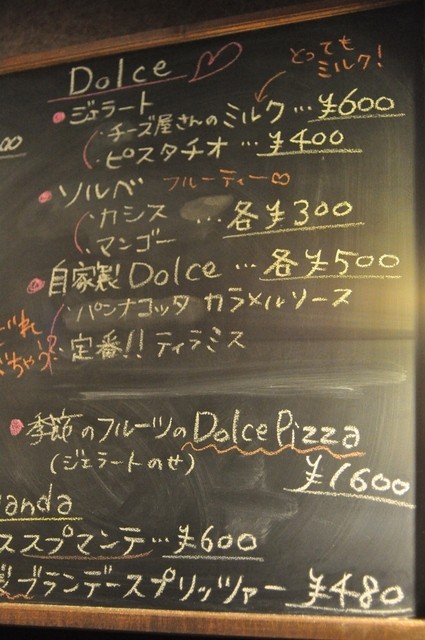 Dolce
とっても
ミルク!
ジェラート
・チーズ屋さんのミルク…¥600
・ピスタチオ…¥400
00
ソルベ フルーティー
・カシス …各¥300
・マンゴー
自家製Dolce…各¥500
・パンナコッタ カラメルソース
・定番!! ティラミス
季節のフルーツのDolce Pizza
(ジェラートのせ)
¥1600
anda
ススプマンテ…¥600
ブランデースプリッツァー ¥480